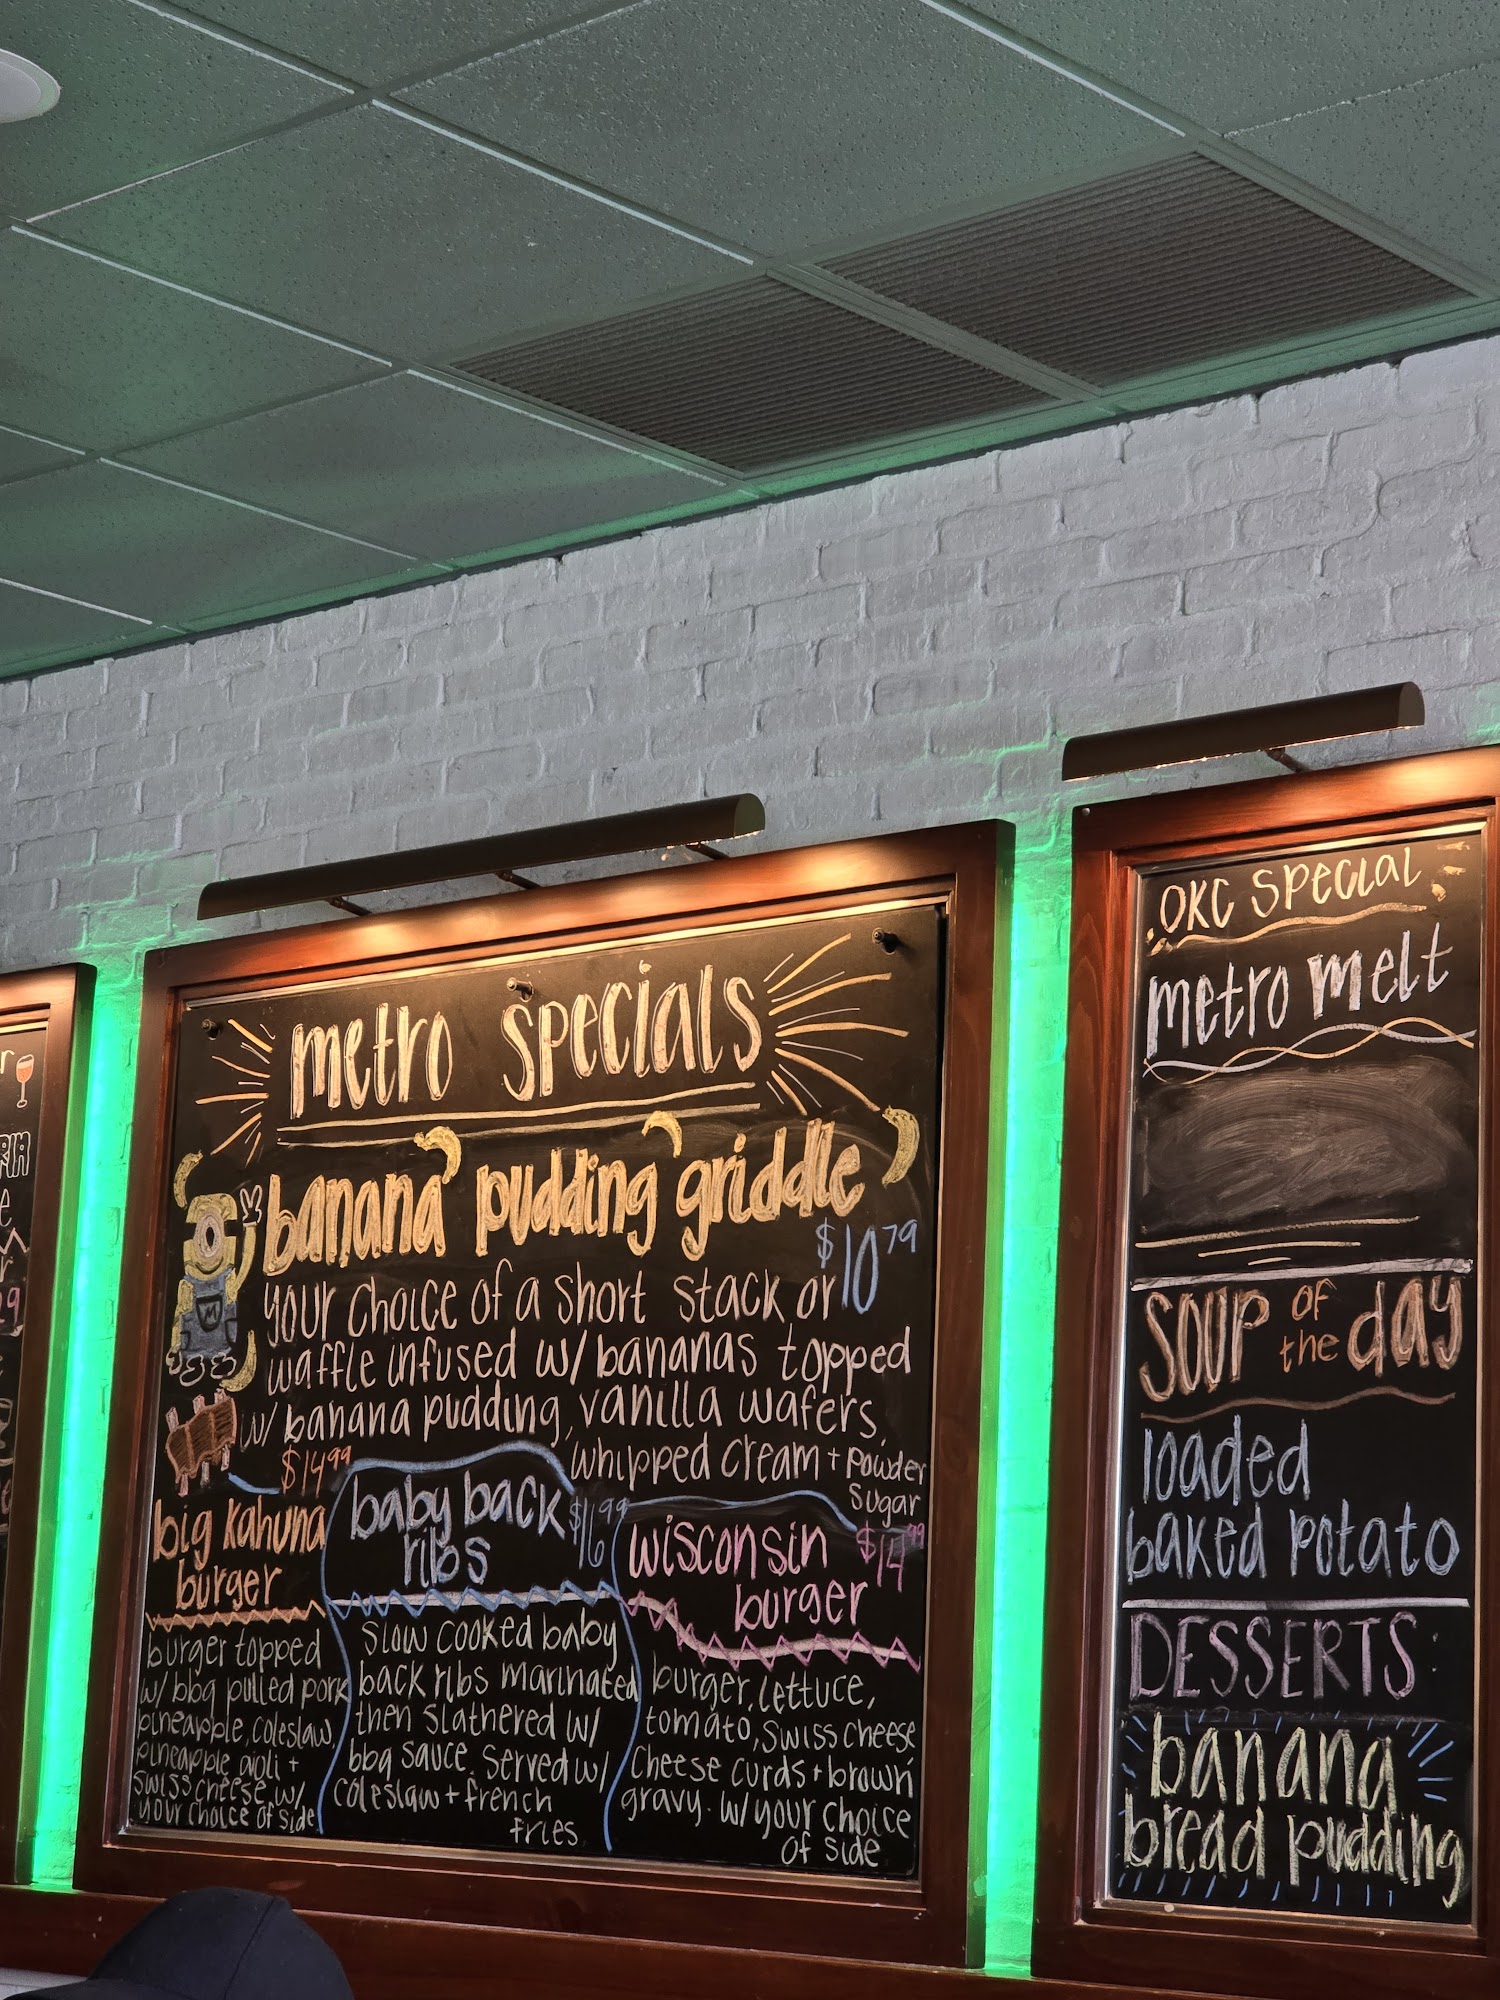 metro specials
banana pudding griddle
$10.79
your choice of a short stack or
waffle infused w/ bananas topped
w/ banana pudding, vanilla wafers,
whipped cream + powder
sugar
$14.99
big kahuna
burger
burger topped
w/ bbq pulled pork
pineapple, coleslaw,
pineapple aioli +
swiss cheese, w/
your choice of side
baby back
ribs
$16.99
slow cooked baby
back ribs marinated
then slathered w/
bbq sauce. served w/
coleslaw + french
fries
wisconsin
burger
$14.99
burger, lettuce,
tomato, swiss cheese,
cheese curds + brown
gravy. w/ your choice
of side
M
OKC special
metro melt
soup of the day
loaded
baked potato
DESSERTS:
banana
bread pudding